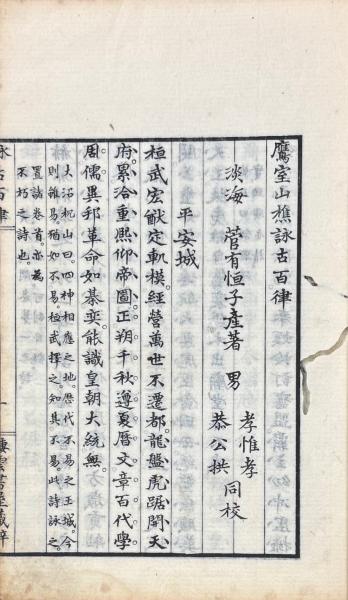 鷹室山樵詠古百律
淡海 菅有恒子產著 男 孝惟孝 恭公拱 同校
平安城
桓武宏猷定軌模。經營萬世不遷都。龍盤虎踞開天
府。累洽重熙仰帝圖。正朔千秋遵夏曆。文章百代學
周儒。異邦革命如棊奕。能識皇朝大統無。
大沼枕山曰。四神相應之地。歷代不易之王城。今
則雖易。猶如不易。桓武擇之。知其不易。此詩詠之。
置諸卷首。亦為
不朽之詩也。
詠古百律
一
棲雲書屋藏梓